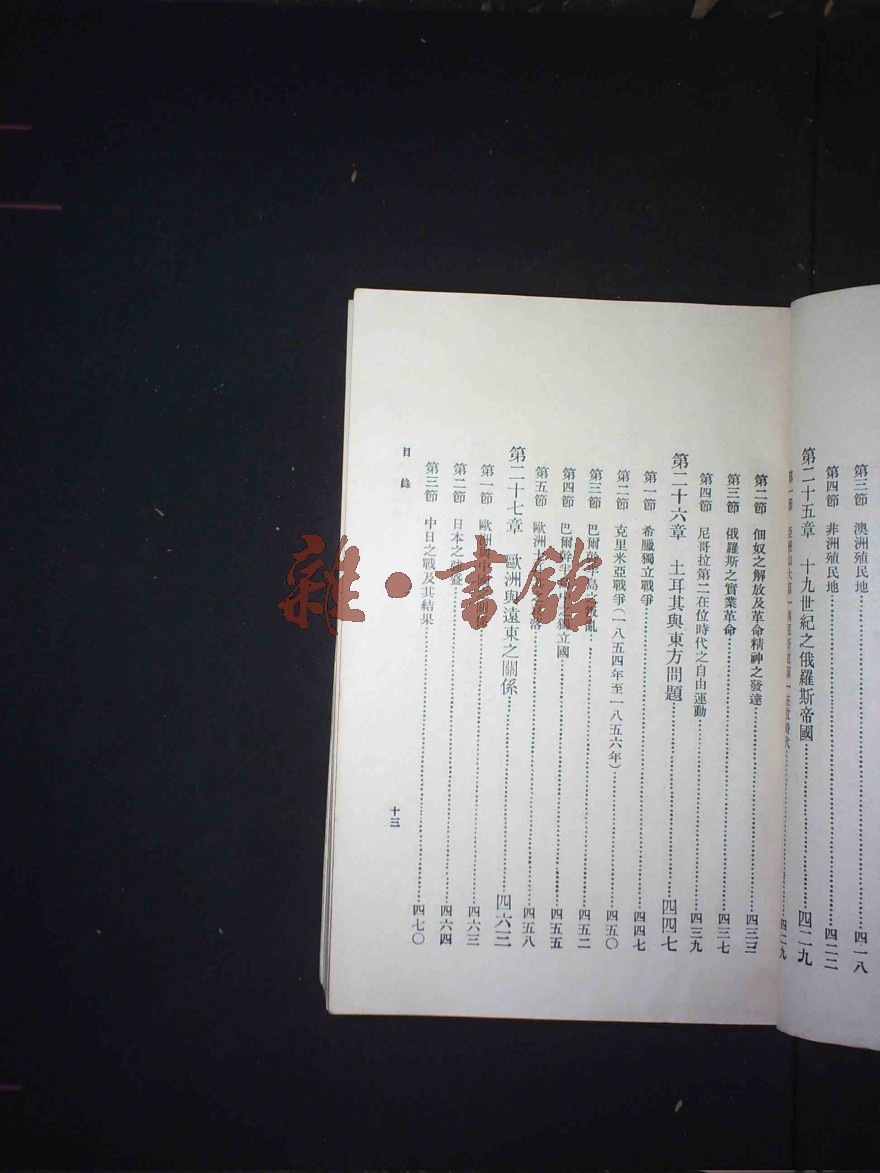 第三節　澳洲殖民地……四一八
第四節　非洲殖民地……四二二
第二十五章　十九世紀之俄羅斯帝國……四二九
第一節……四二九
第二節　佃奴之解放及革命精神之發達……四三三
第三節　俄羅斯之實業革命……四三七
第四節　尼哥拉第二在位時代之自由運動……四三九
第二十六章　土耳其與東方問題……四四七
第一節　希臘獨立戰爭……四四七
第二節　克里米亞戰爭（一八五四年至一八五六年）……四五〇
第三節　巴爾幹半島之叛亂……四五二
第四節　巴爾幹半島中之獨立國……四五五
第五節　歐洲土耳其之衰落……四五八
第二十七章　歐洲與遠東之關係……四六三
第一節　歐洲與中國之關係……四六三
第二節　日本之強盛……四六四
第三節　中日之戰及其結果……四七〇
目錄
十三
雜·書館